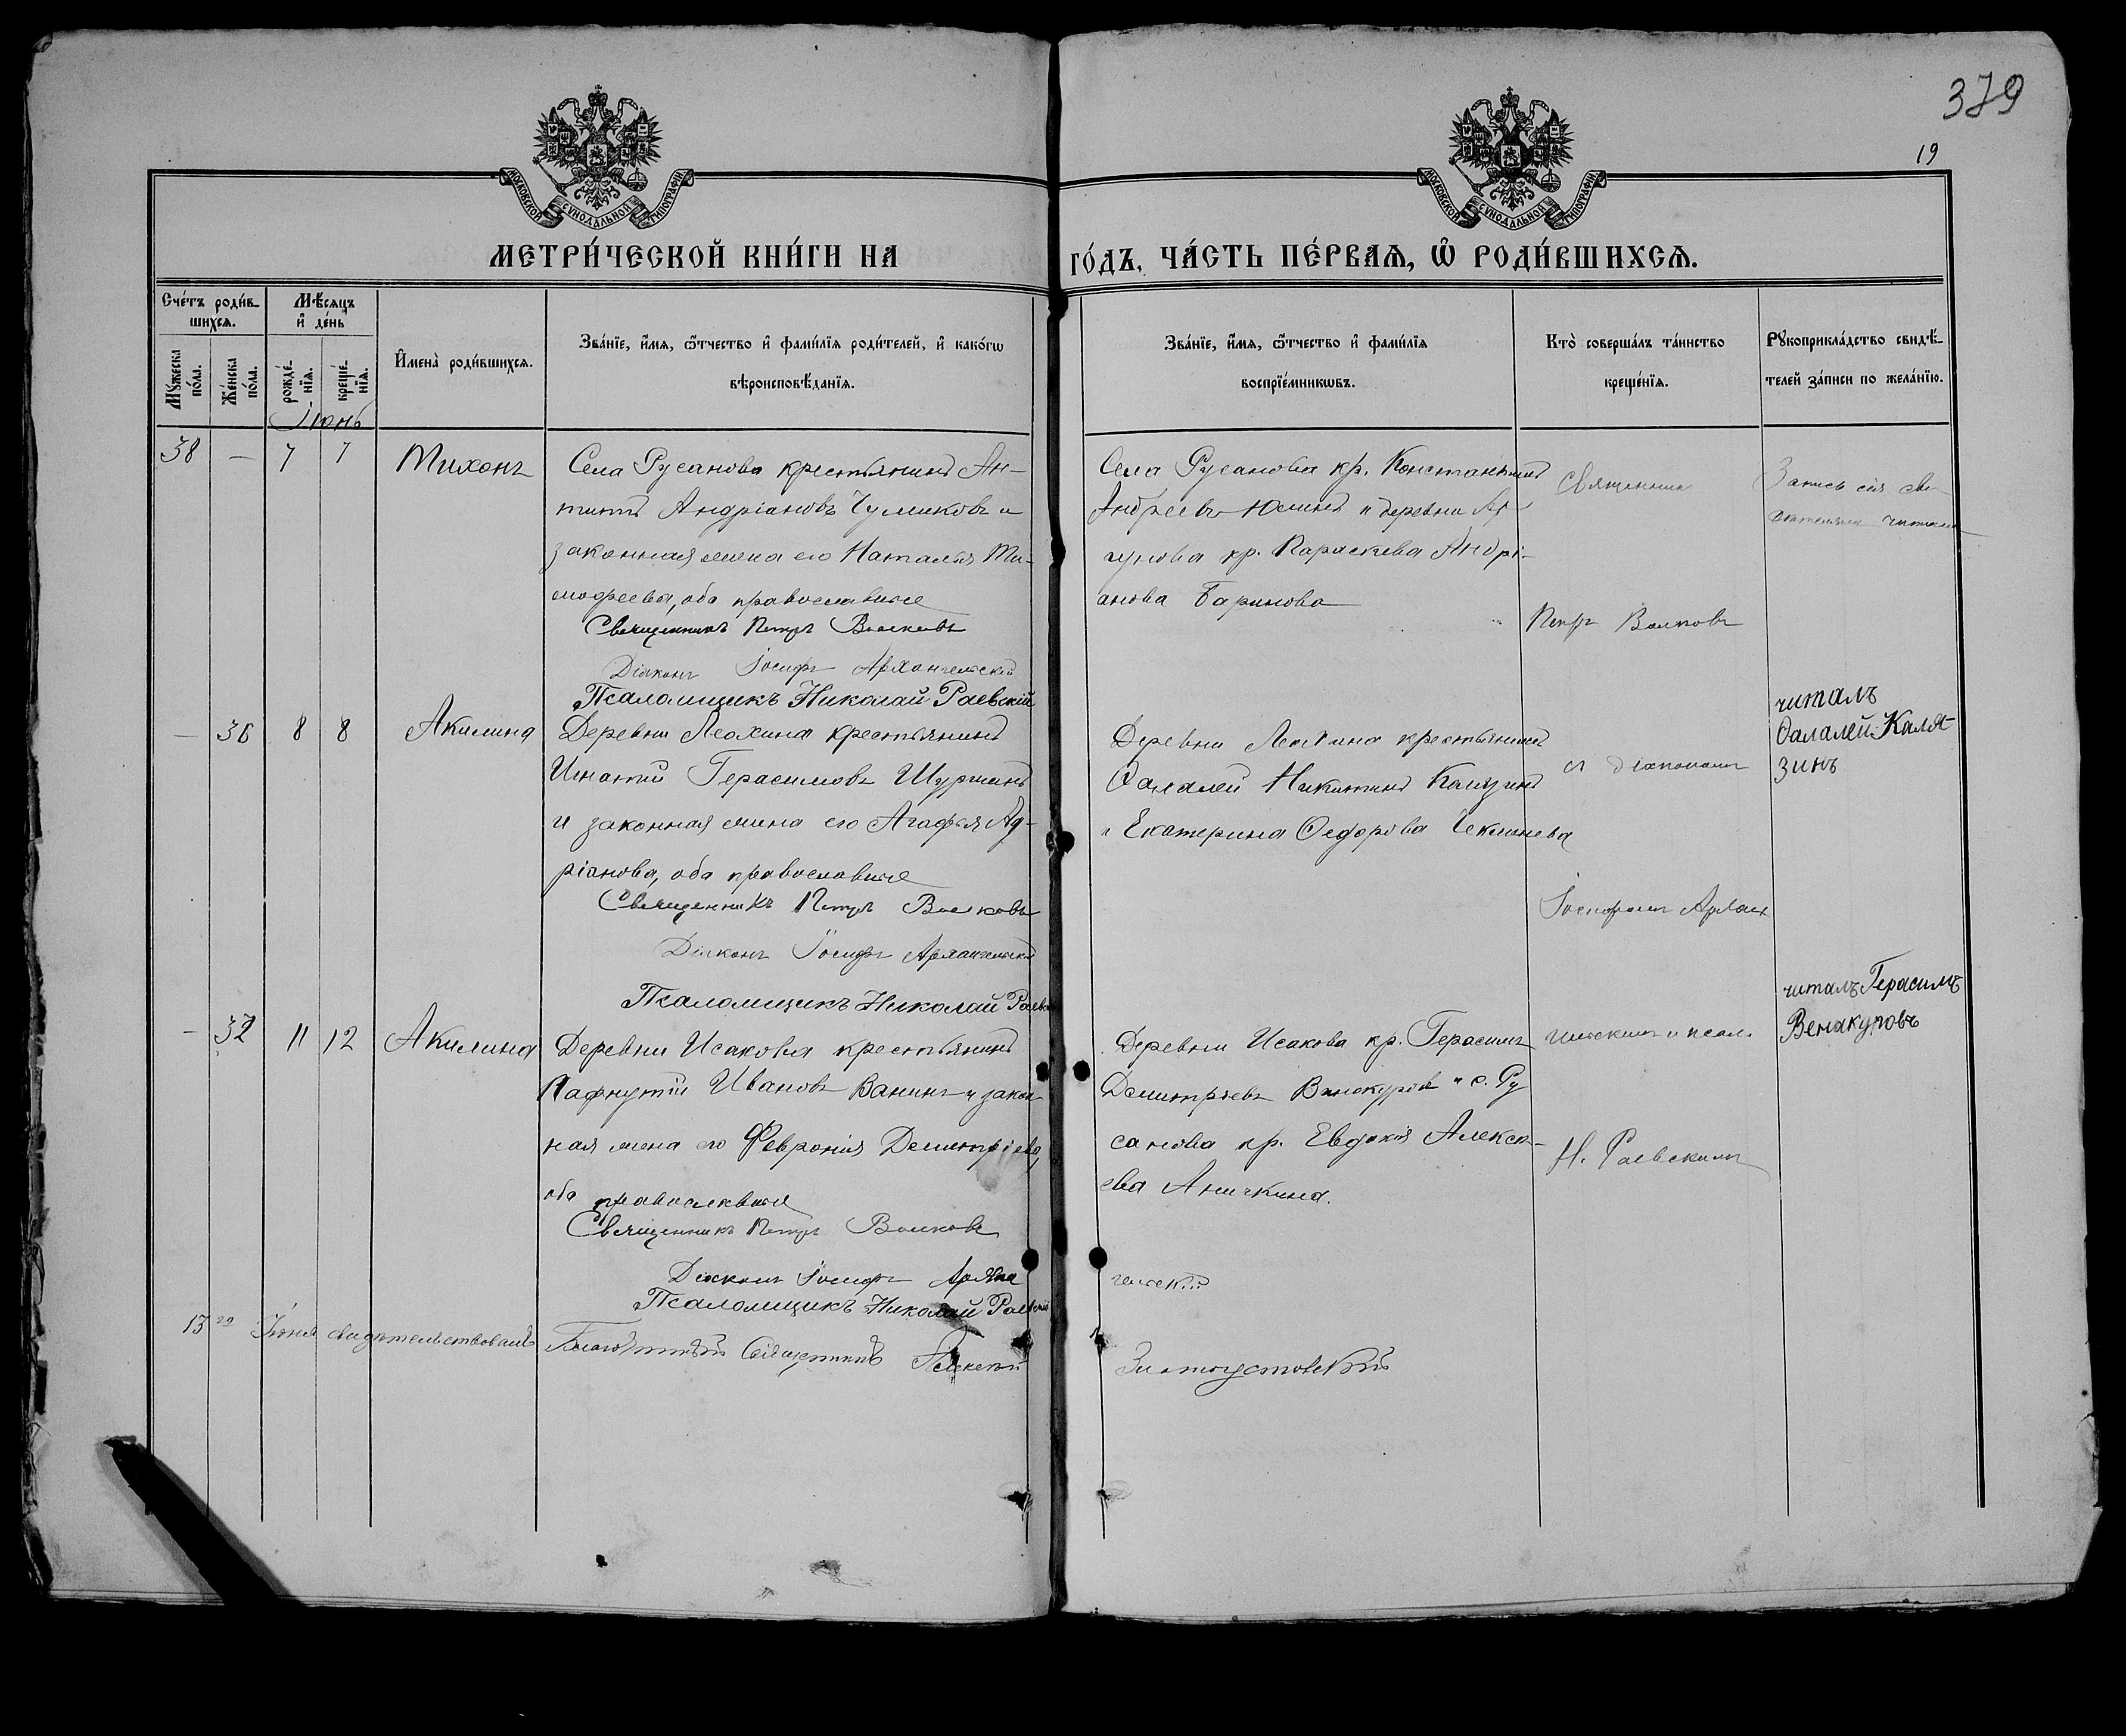 379
19
МОСКОВСКОЙ СѴНОДАЛЬНОЙ ТИПОГРАФІИ
МОСКОВСКОЙ СѴНОДАЛЬНОЙ ТИПОГРАФІИ
МЕТРИ́ЧЕСКОЙ КНИ́ГИ НА
ГО́ДЪ, ЧА́СТЬ ПЕ́РВАѦ, Ѡ҆ РОДИ́ВШИХСѦ.
Сче́тъ роди́в-
шихсѧ.
Мꙋ́жеска по́ла.
Же́нска по́ла.
Мѣ́сѧцъ
и҆ де́нь
рожде́-нїѧ.
креще́-нїѧ.
И҆мена̀ роди́вшихсѧ.
Зва́нїе, и҆́мѧ, ѻ҆́тчество и҆ фами́лїѧ роди́телей, и҆ како́гѡ
вѣроисповѣ́данїѧ.
Зва́нїе, и҆́мѧ, ѻ҆́тчество и҆ фами́лїѧ
воспрїе́мникѡвъ.
Кто̀ соверша́лъ та́инство
креще́нїѧ.
Рꙋкоприкла́дство свидѣ́-
телей за́писи по жела́нїю.
Іюнь
38 — 7 7 Тихонъ
Села Русанова крестьянинъ Ан-
типъ Андріановъ Чумиковъ и
законная жена его Наталья Ти-
мофеева, оба православные
Священникъ Петръ Волковъ
Діаконъ Іосифъ Архангельскій
Псаломщикъ Николай Раевскій
Села Русанова кр. Константинъ
Андреевъ Юдинъ и деревни
кр. Параскева Андрі-
анова Баринова
Священник
Петр Волков
Запись сія
читана
— 36 8 8 Акилина
Деревни Леохина крестьянинъ
Игнатій Герасимовъ Шуршинъ
и законная жена его Агафья Ад-
ріанова, оба православные
Священникъ Петръ Волковъ
Діаконъ Іосифъ Архангельскій
Псаломщикъ Николай Раевскій
Деревни Леохина крестьянинъ
Ѳалалей Никитинъ Калязинъ
и Екатерина Ѳедорова Чекменева
съ діакономъ
Іосифомъ Архан
читалъ
Ѳалалей Каля-
зинъ
— 37 11 12 Акилина
Деревни Исакова крестьянинъ
Пафнутій Ивановъ Ванинъ и закон-
ная жена его Февронія Димитріева,
оба православные
Священникъ Петръ Волковъ
Діаконъ Іосифъ Архан
гельскій
Псаломщикъ Николай Раевскій
Деревни Исакова кр. Герасимъ
Димитріевъ Винокуров и с. Ру
санова кр. Евдокія Алексе-
ева Аничкина.
гельскимъ и псал.
Н. Раевскимъ
читалъ Герасимъ
Венакуровъ
13го Іюня свидѣтельствовалъ Благочинный Священникъ Алексѣй
Златоустовскій